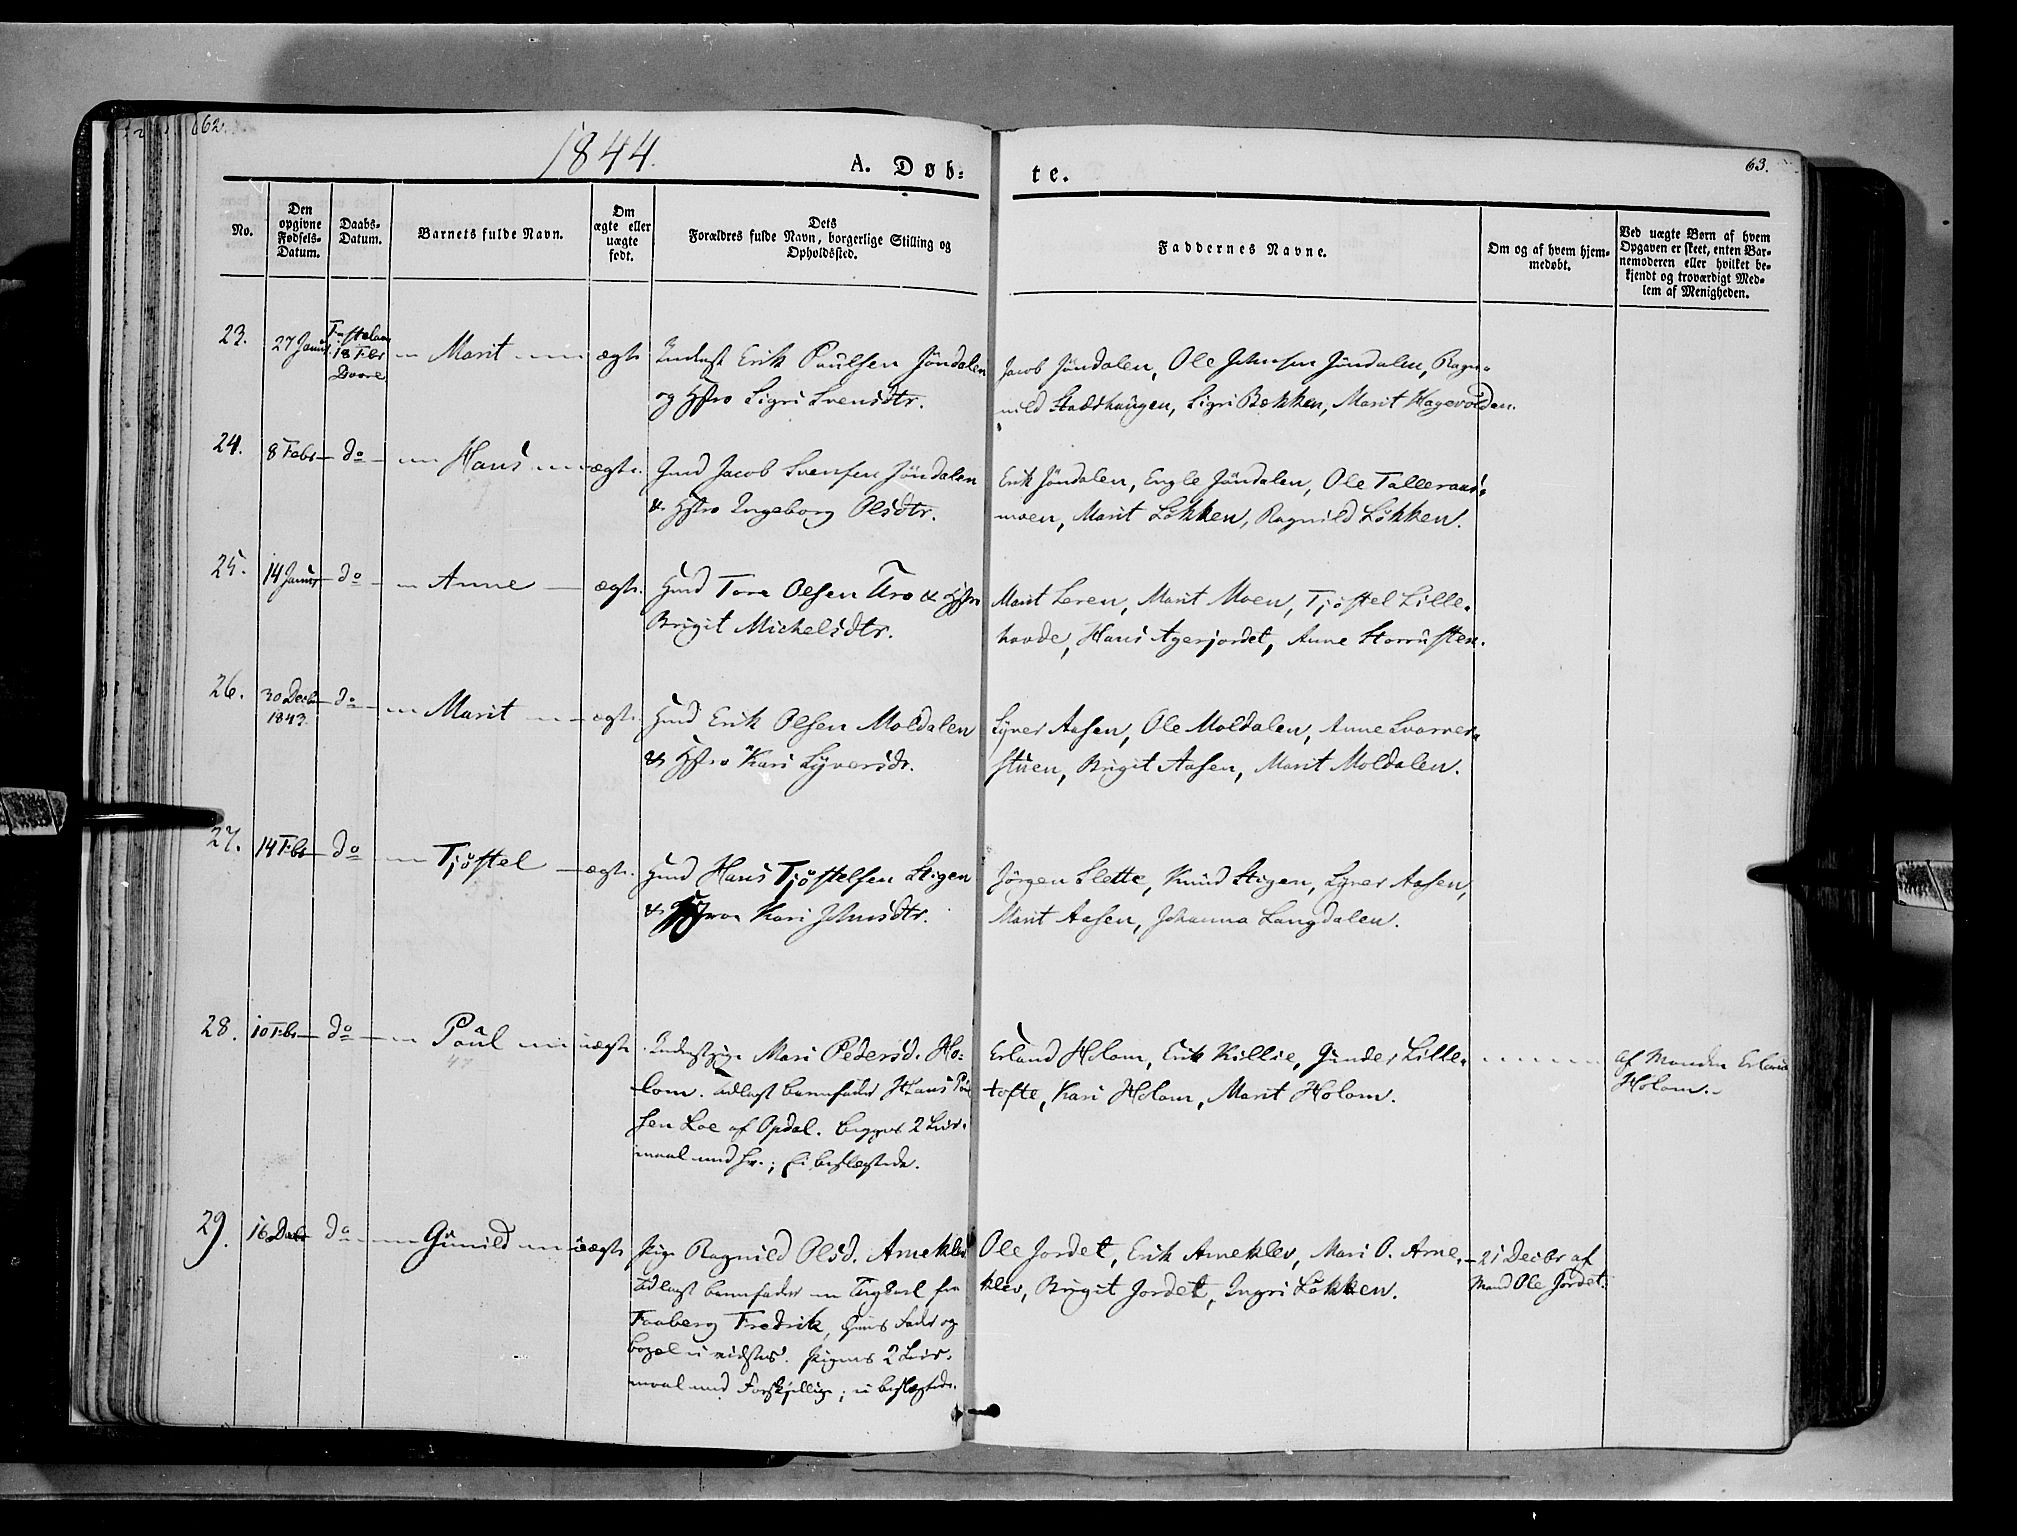 62.
63.
1844.
A. Døb-
te.
No.
Den opgivne Fødsels-Datum.
Daabs-Datum.
Barnets fulde Navn.
Om ægte eller uægte født.
Dets Forældres fulde Navn, borgerlige Stilling og Opholdssted.
Faddernes Navne.
Om og af hvem hjem-medøbt.
Ved uægte Børn af hvem Opgaven er skeet, enten Bar-nemoderen eller hvilket be-kjendt og troværdigt Med-lem af Menigheden.
23. 27 Januar Fastelavn 18 Febr Dovre Marit ægte Inderst Erik Paulsen Jöndalen
og Hstro Sigri Svensdtr.
Jacob Jöndalen, Ole Johnsen Jöndalen, Rag-
nild Stadshaugen, Sigri Bækken, Marit Hagevolden.
24. 8 Febr do Hans ægte Gmd Jacob Svensen Jöndalen
& Hstro Ingeborg Olsdtr.
Erik Jöndalen, Engle Jöndalen, Ole Talleraas-
moen, Marit Lökken, Ragnild Lökken.
25. 14 Januar do Anne ægte Hmd Tore Olsen Uro & Hstro
Brigit Michelsdtr.
Marit Leren, Marit Moen, Tjöstel Lille-
haave, Hans Agerjordet, Anne Storrusten.
26. 30 Decbr 1843. do Marit ægte Hmd Erik Olsen Moldalen
& Hstro Kari Syversdr.
Syver Aasen, Ole Moldalen, Anne Svarver-
stuen, Brigit Aasen, Marit Moldalen.
27. 14 Febr do Tjöstel ægte Hmd Hans Tjöstelsen Stigen
& Hstroe Kari Johnsdtr.
Jörgen Slette, Knud Stigen, Syver Aasen,
Marit Aasen, Johanna Langdalen.
28. 10 Febr do Paul uægte Inderstpige Mari Pedersd. Ho-
lom. Udlagt barnefader Hans Paul
sen Loe af Opdal. begges 2 Leier-
maal med hv.; Ei beslægtede.
Erland Holom, Erik Killie, Gunder Lille-
tofte, Kari Holom, Marit Holom.
Af Manden Erland
Holom.
29. 16 Decbr do Gunild uægte Pige Ragnild Olsd. Arneklev
Udlagt barnefader en Ungkarl fra
Faaberg Fredrik, hvis Fader og
bopæl ei vidstes. Pigens 2 Leier-
maal med Forskjellige; ei beslægtede.
Ole Jordet, Erik Arneklev, Mari O. Arne-
klev, Brigit Jordet, Ingri Lökken.
21 Decbr af
Mand Ole Jordet.